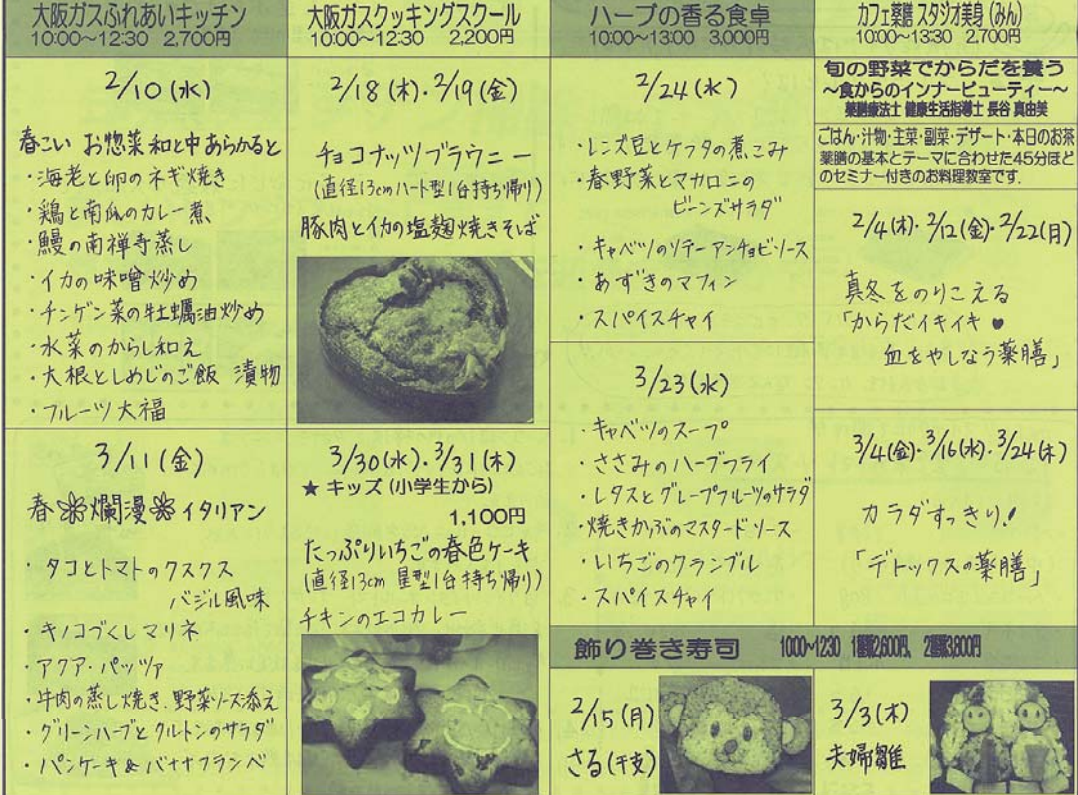 大阪ガスふれあいキッチン
10:00～12:30 2,700円
2/10(水)
春こい お惣菜 和と中 あらかると
・海老と卵のネギ焼き
・鶏と南瓜のカレー煮
・鰻の南禅寺蒸し
・イカの味噌炒め
・チンゲン菜の牡蠣油炒め
・水菜のからし和え
・大根としめじのご飯 漬物
・フルーツ大福
3/11(金)
春爛漫イタリアン
・タコとトマトのクスクス
バジル風味
・キノコづくしマリネ
・アクア・パッツァ
・牛肉の蒸し焼き、野菜ソース添え
・グリーンハーブとクルトンのサラダ
・パンケーキ&バナナフランベ
大阪ガスクッキングスクール
10:00～12:30 2,200円
2/18(木)・2/19(金)
チョコナッツブラウニー
(直径13cmハート型1台持ち帰り)
豚肉とイカの塩麹焼きそば
3/30(水)・3/31(木)
★キッズ(小学生から)
1,100円
たっぷりいちごの春色ケーキ
(直径13cm 星型1台持ち帰り)
チキンのエコカレー
ハーブの香る食卓
10:00～13:00 3,000円
2/24(水)
・レンズ豆とケフタの煮こみ
・春野菜とマカロニの
ビーンズサラダ
・キャベツのソテー アンチョビソース
・あずきのマフィン
・スパイスチャイ
3/23(水)
・キャベツのスープ
・ささみのハーブフライ
・レタスとグレープフルーツのサラダ
・焼きかぶのマスタードソース
・いちごのクランブル
・スパイスチャイ
カフェ薬膳 スタジオ美身(みん)
10:00～13:30 2,700円
旬の野菜でからだを養う
～食からのインナービューティー～
薬膳療法士 健康生活指導士 長谷 真由美
ごはん・汁物・主菜・副菜・デザート・本日のお茶
薬膳の基本とテーマに合わせた45分ほど
のセミナー付きのお料理教室です.
2/4(木)・2/12(金)・2/22(月)
真冬をのりこえる
「からだイキイキ♥
血をやしなう薬膳」
3/4(金)・3/16(水)・3/24(木)
カラダすっきり!
「デトックスの薬膳」
飾り巻き寿司 1000～1230 1種類2,600円、2種類3,800円
2/15(月)
さる(干支)
3/3(木)
夫婦雛